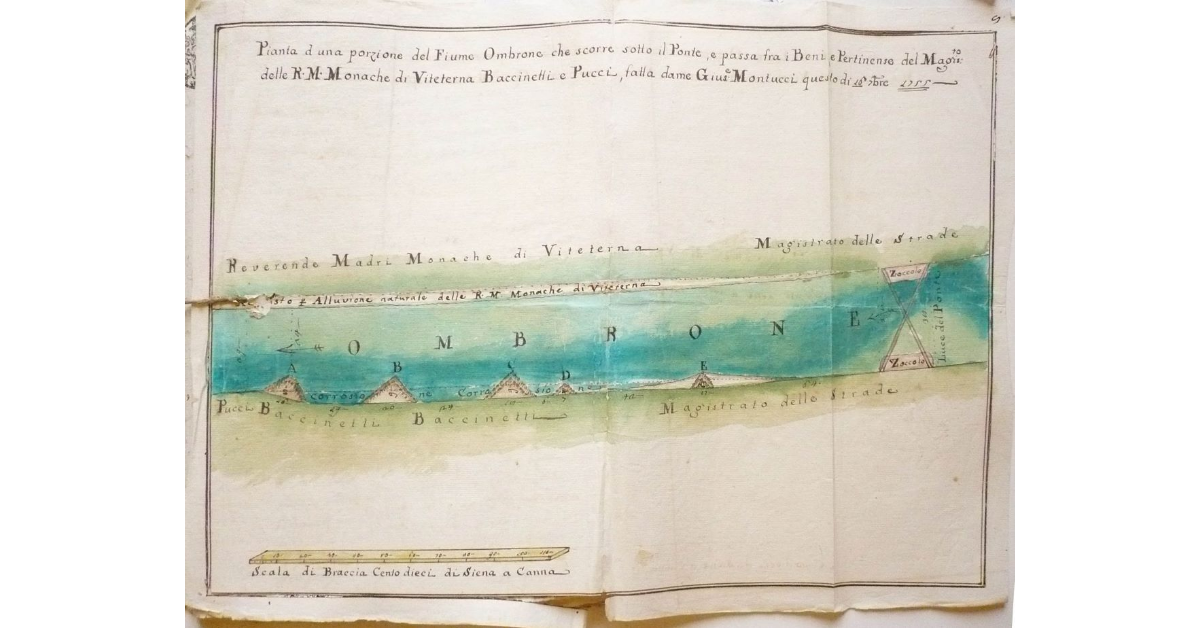 Pianta d una porzione del Fiume Ombrone che scorre sotto il Ponte, e passa fra i Beni e Pertinense del Mag.to
delle R. M. Monache di Viteterna Baccinelli e Pucci, fatta da me Gius.e Montucci questo di 18 7bre 1755
Reverende Madri Monache di Viteterna
Magistrato delle Strade
Alluvione naturale delle R. M. Monache di Viteterna
Zoccolo
Luce del Ponte
O M B R O N E
A B C D E
corrosione
Corrosione
Zoccolo
Pucci Baccinelli Baccinelli
Magistrato delle Strade
10 20 30 40 50 60 70 80 90 100 110
Scala di Braccia Cento dieci di Siena a Canna